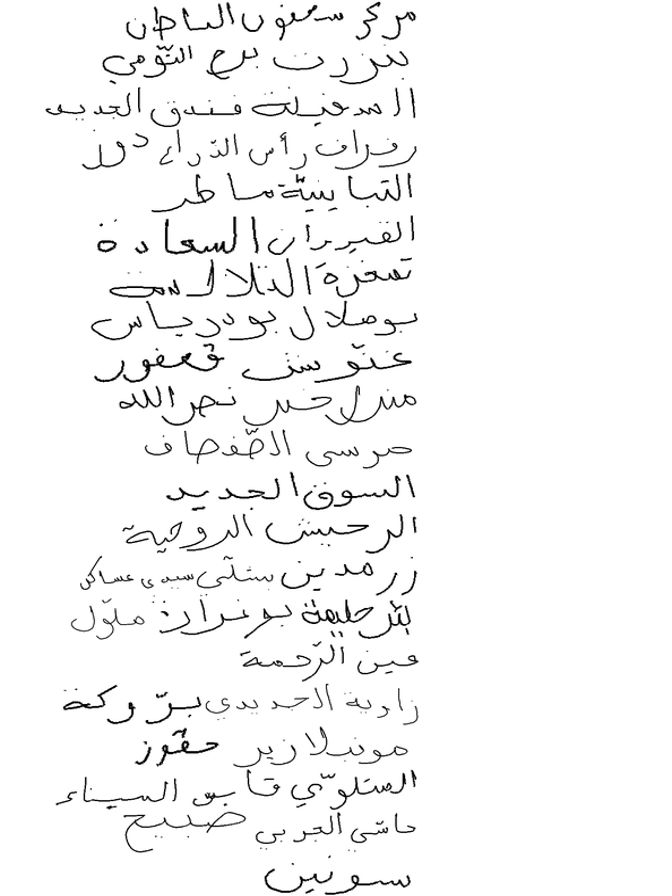 مركز سعنون الباطن
بنزرت برج التّومي
السعفيلة فندق الجديد
رفراف رأس الذراع دوز
التبابنيّة ساطر
القيروان السعادة
تمغزة التلالسة
بوصلال بودرياس
عتّوش قعفور
منزل خير نصر الله
مرسى الصّفصاف
السوق الجديد
الرحيش الروحية
زرمدين ستّي سيدي عساكر
بئر حليمة بوغرارة ملّول
عين الرّحمة
زاوية الحديدي برّوكة
مونبلازير حفّوز
المتلوّي قابس الميناء
حاسّي الجربي صبيح
سونين